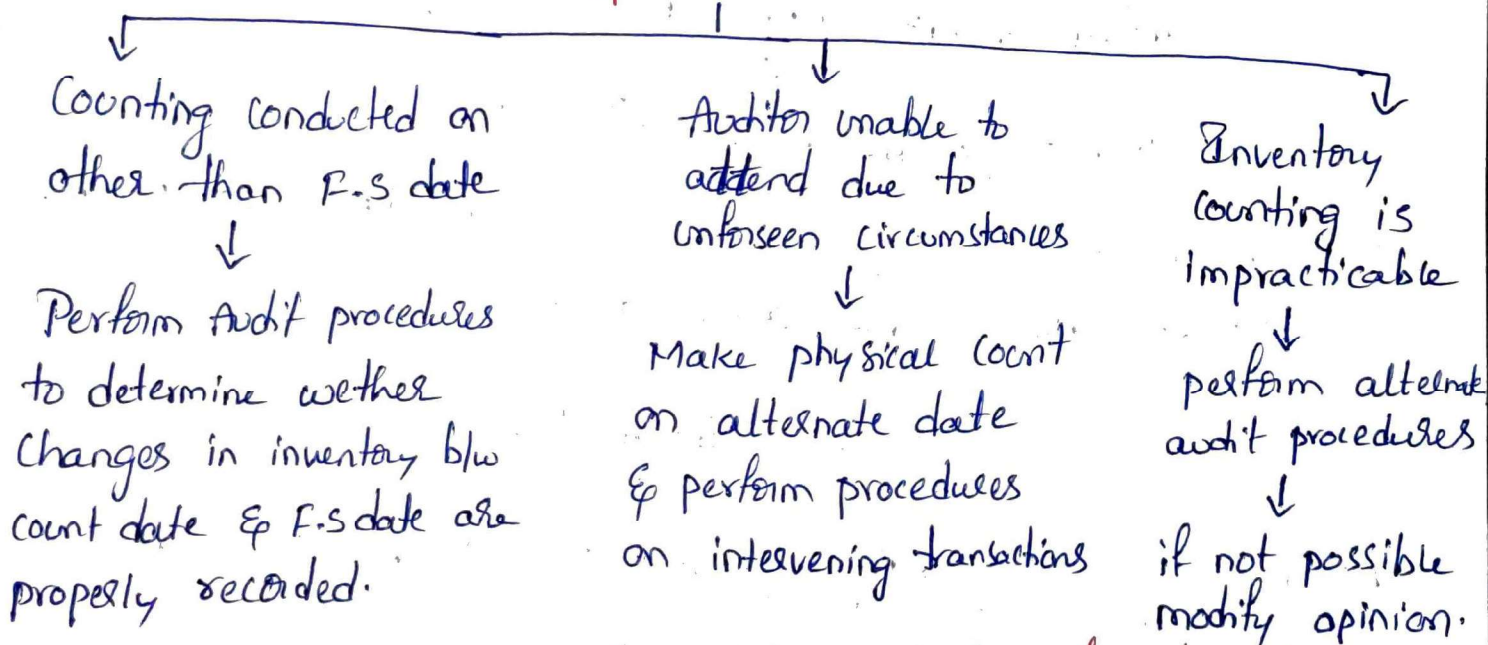 Counting conducted on
other than F.S date
Perform Audit procedures
to determine wether
Changes in inventory b/w
count date & F.S date are
properly recorded.
Auditor unable to
attend due to
unforseen circumstances
Make physical count
on alternate date
& perform procedures
on intervening transactions
Inventory
counting is
impracticable
perform alternate
audit procedures
if not possible
modify opinion.